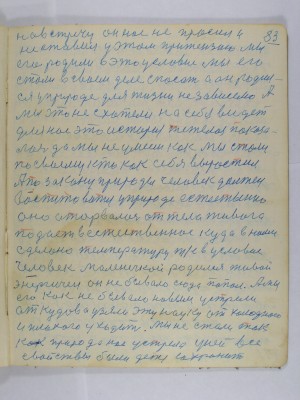 83
навстречу он нас не просил а
не ставил у этом притензию мы
его родили в это условие мы его
стали в своем деле спасать а он родил-
ся у природе для жизни независемо А
мы это не схотели на себя
для нас это история тяжелая
да мы не умеем как мы стали
по своему кто как себя вырастил
А по закону природы человек должен
у природе естественно
оно оторвалися от тела живого
естественное куда в нами
сделано температуру в условие
человек маленичкой родился живой
энергичен он не бывало сюда попал. А мы
его как не бывало нами устрели
откудова взяли эту науку от холодного
и плохого уходить. Мы не стали так
как природа нас устрела у ней все
свойства были дети сохранить